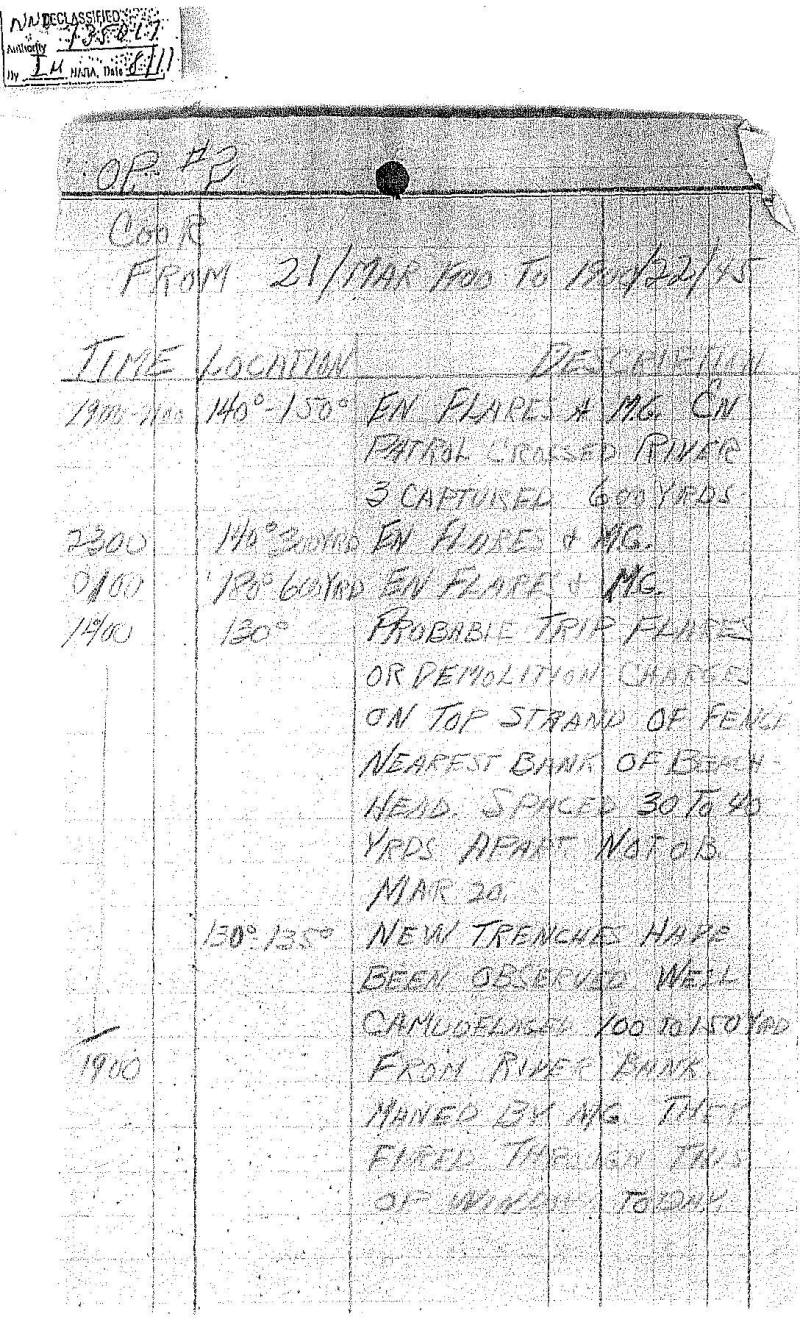 DECLASSIFIED
Authority 735017
By IM NARA, Date 8/11
OP #2
COOR
FROM 21/MAR 1900 TO 1900/22/45
TIME LOCATION DESCRIPTION
1900-2100 140°-150° EN FLARES & M.G. ON
PATROL CROSSED RIVER
3 CAPTURED 600 YRDS
2300 140° 300YRD EN FLARES & MG.
0100 180° 600YRD EN FLARES & MG.
1400 130° PROBABLE TRIP FLARES
OR DEMOLITION CHARGES
ON TOP STRAND OF FENCE
NEAREST BANK OF BEACH-
HEAD. SPACED 30 TO 40
YRDS APART. NOT OB.
MAR 20.
130°-135° NEW TRENCHES HAVE
BEEN OBSERVED WELL
100 TO 150 YRD
1900 FROM RIVER BANK.
MANED BY MG. THEY
FIRED THROUGH THIS
OP WINDOW TODAY